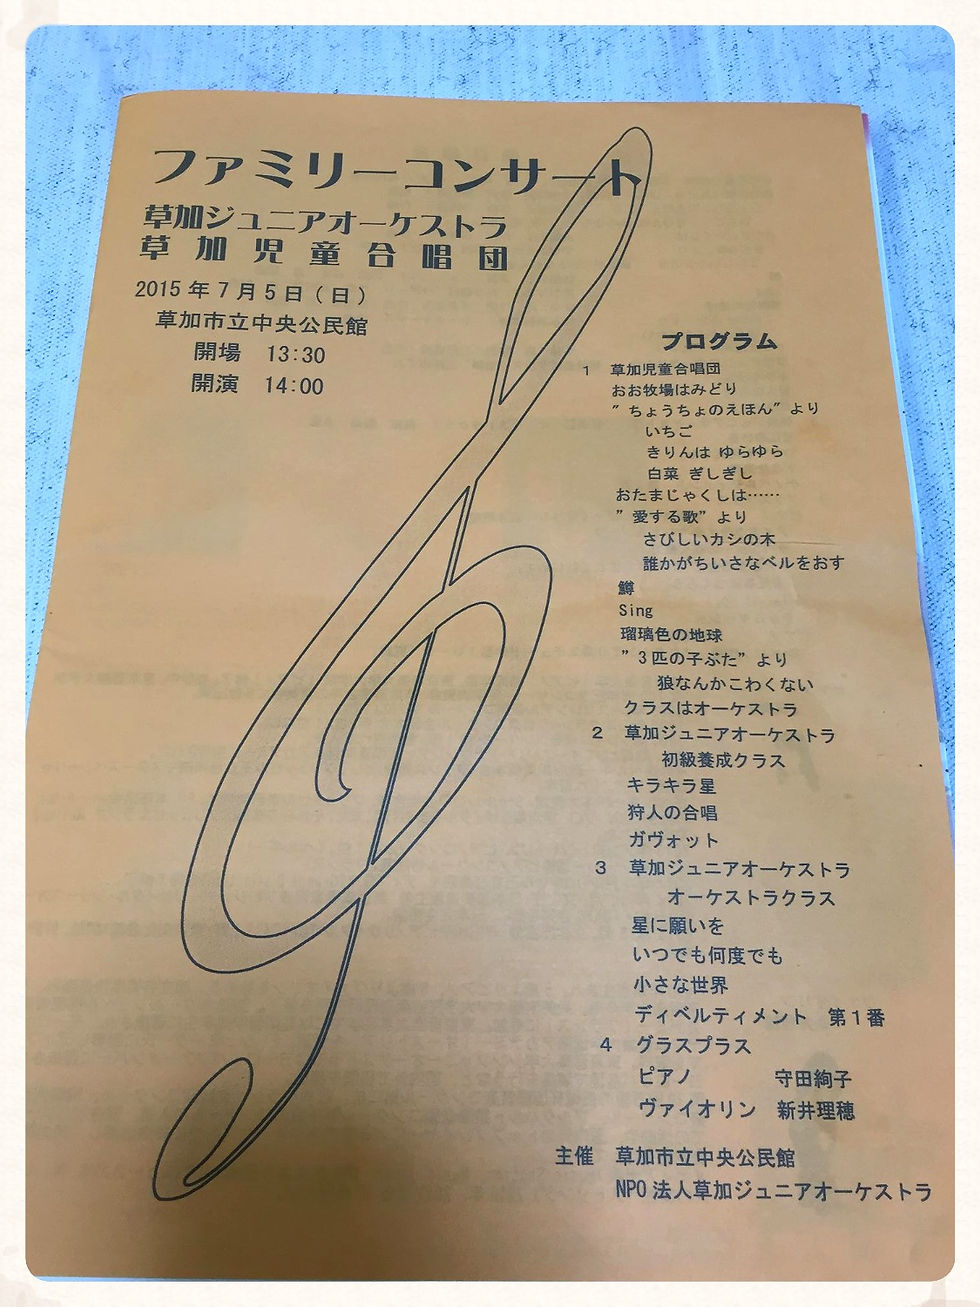 ファミリーコンサート
草加ジュニアオーケストラ
草加児童合唱団
2015年7月5日(日)
草加市立中央公民館
開場 13:30
開演 14:00
プログラム
1 草加児童合唱団
おお牧場はみどり
"ちょうちょのえほん"より
いちご
きりんは ゆらゆら
白菜 ぎしぎし
おたまじゃくしは……
"愛する歌"より
さびしいカシの木
誰かがちいさなベルをおす
鱒
Sing
瑠璃色の地球
"3匹の子ぶた"より
狼なんかこわくない
クラスはオーケストラ
2 草加ジュニアオーケストラ
初級養成クラス
キラキラ星
狩人の合唱
ガヴォット
3 草加ジュニアオーケストラ
オーケストラクラス
星に願いを
いつでも何度でも
小さな世界
ディベルティメント 第1番
4 グラスプラス
ピアノ 守田絢子
ヴァイオリン 新井理穂
主催 草加市立中央公民館
NPO法人草加ジュニアオーケストラ